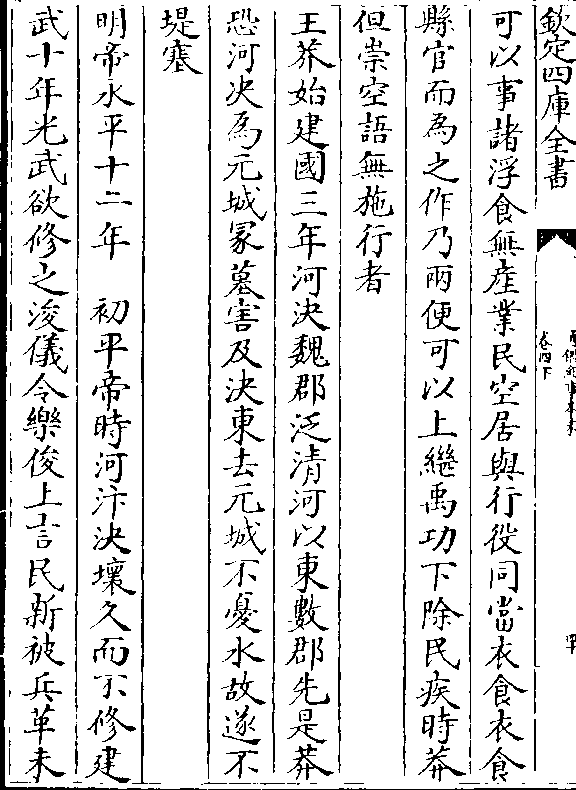 欽定四庫全書
卷四下
可以事諸浮食無産業民空居與行役同當衣食衣食
縣官而為之作乃兩便可以上繼禹功下除民疾時莽
但崇空語無施行者
王莽始建國三年河決魏郡泛清河以東數郡先是莽
恐河决為元城冢墓害及決東去元城不憂水故遂不
堤塞
明帝永平十二年　初平帝時河汴決壞久而不修建
武十年光武欲修之浚儀令樂俊上言民新被兵革未